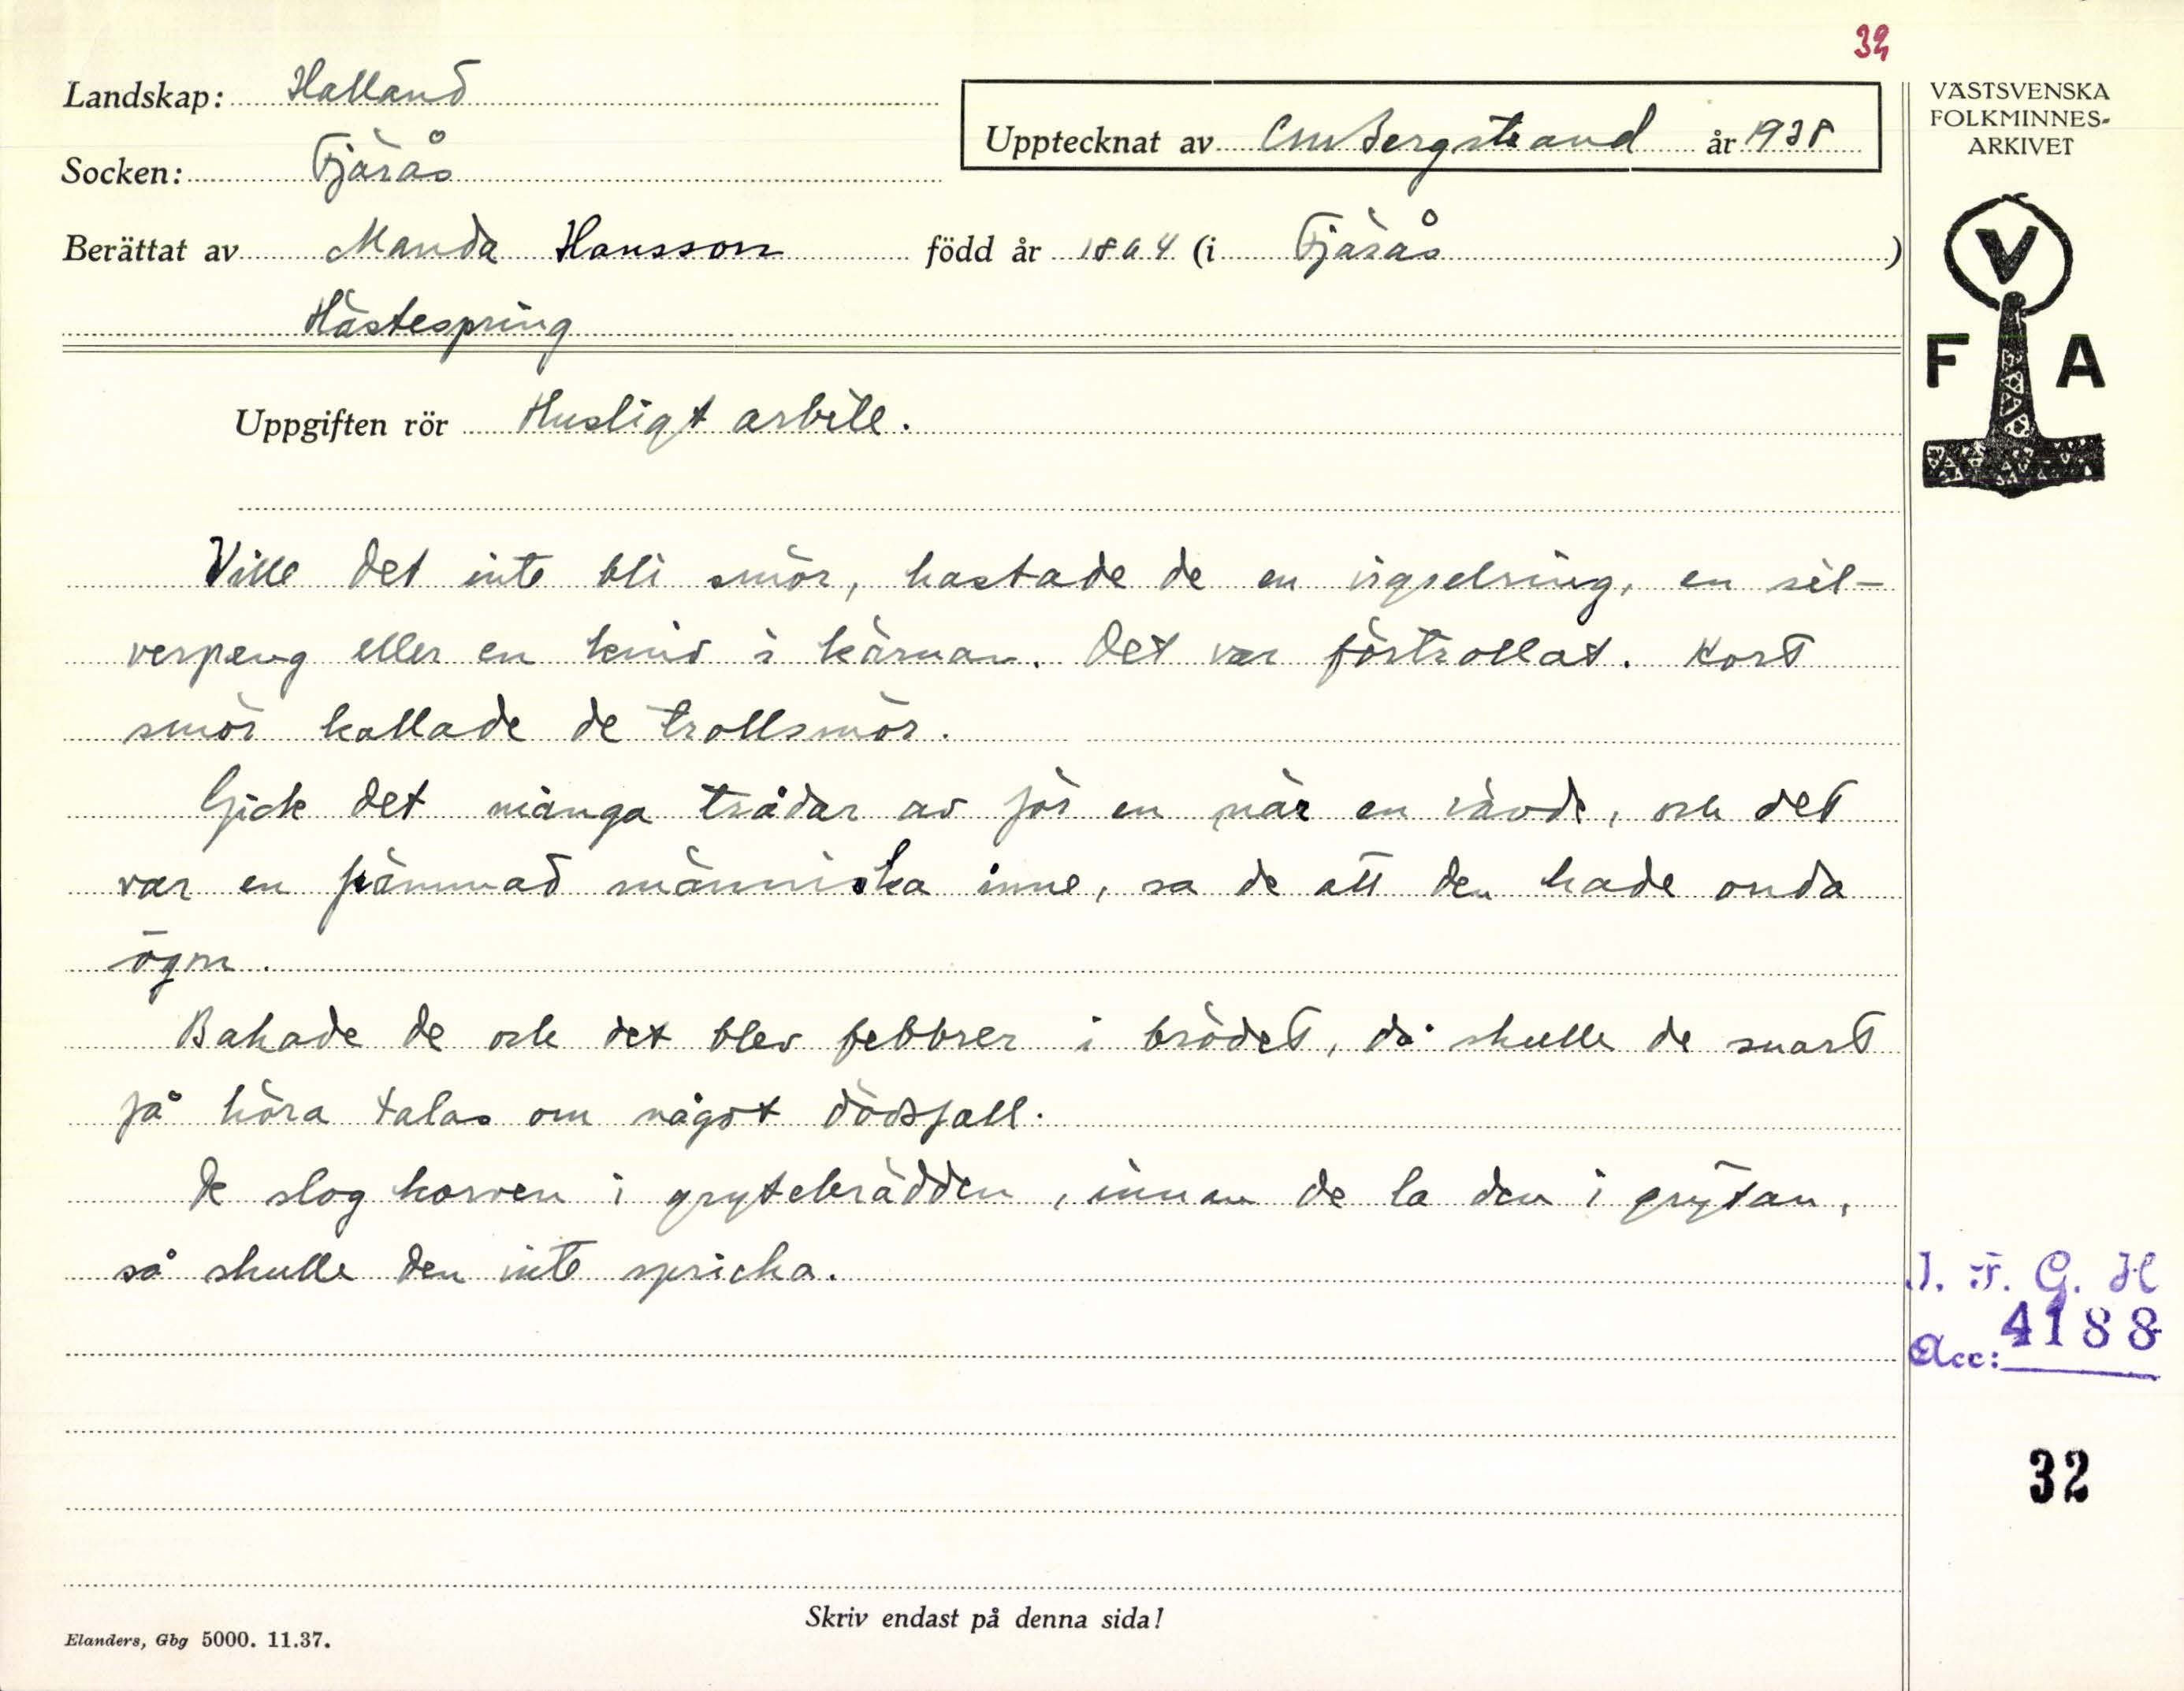 32
Landskap: Halland
Upptecknat av CMBergstrand år 1938
Socken: Fjärås
Berättat av Manda Hansson född år 1864 (i Fjärås)
Hästespring
Uppgiften rör Husligt arbete.
Ville det inte bli smör, kastade de en vigselring, en sil-
verpeng eller en kniv i kärnan. Det var förtrollat. Kort
smör kallade de trollsmör.
Gick det många trådar av för en när en vävde, och det
var en främmad människa inne, sa de att den hade onda
ögon.
Bakade de och det blev febbrer i brödet, då skulle de snart
få höra talas om något dödsfall.
De slog korven i grytebrädden, innan de la den i grytan,
så skulle den inte spricka.
Skriv endast på denna sida!
Elanders, Gbg 5000. 11.37.
VÄSTSVENSKA
FOLKMINNES-
ARKIVET
V
F A
I. F. G. H
4188
Acc:
32